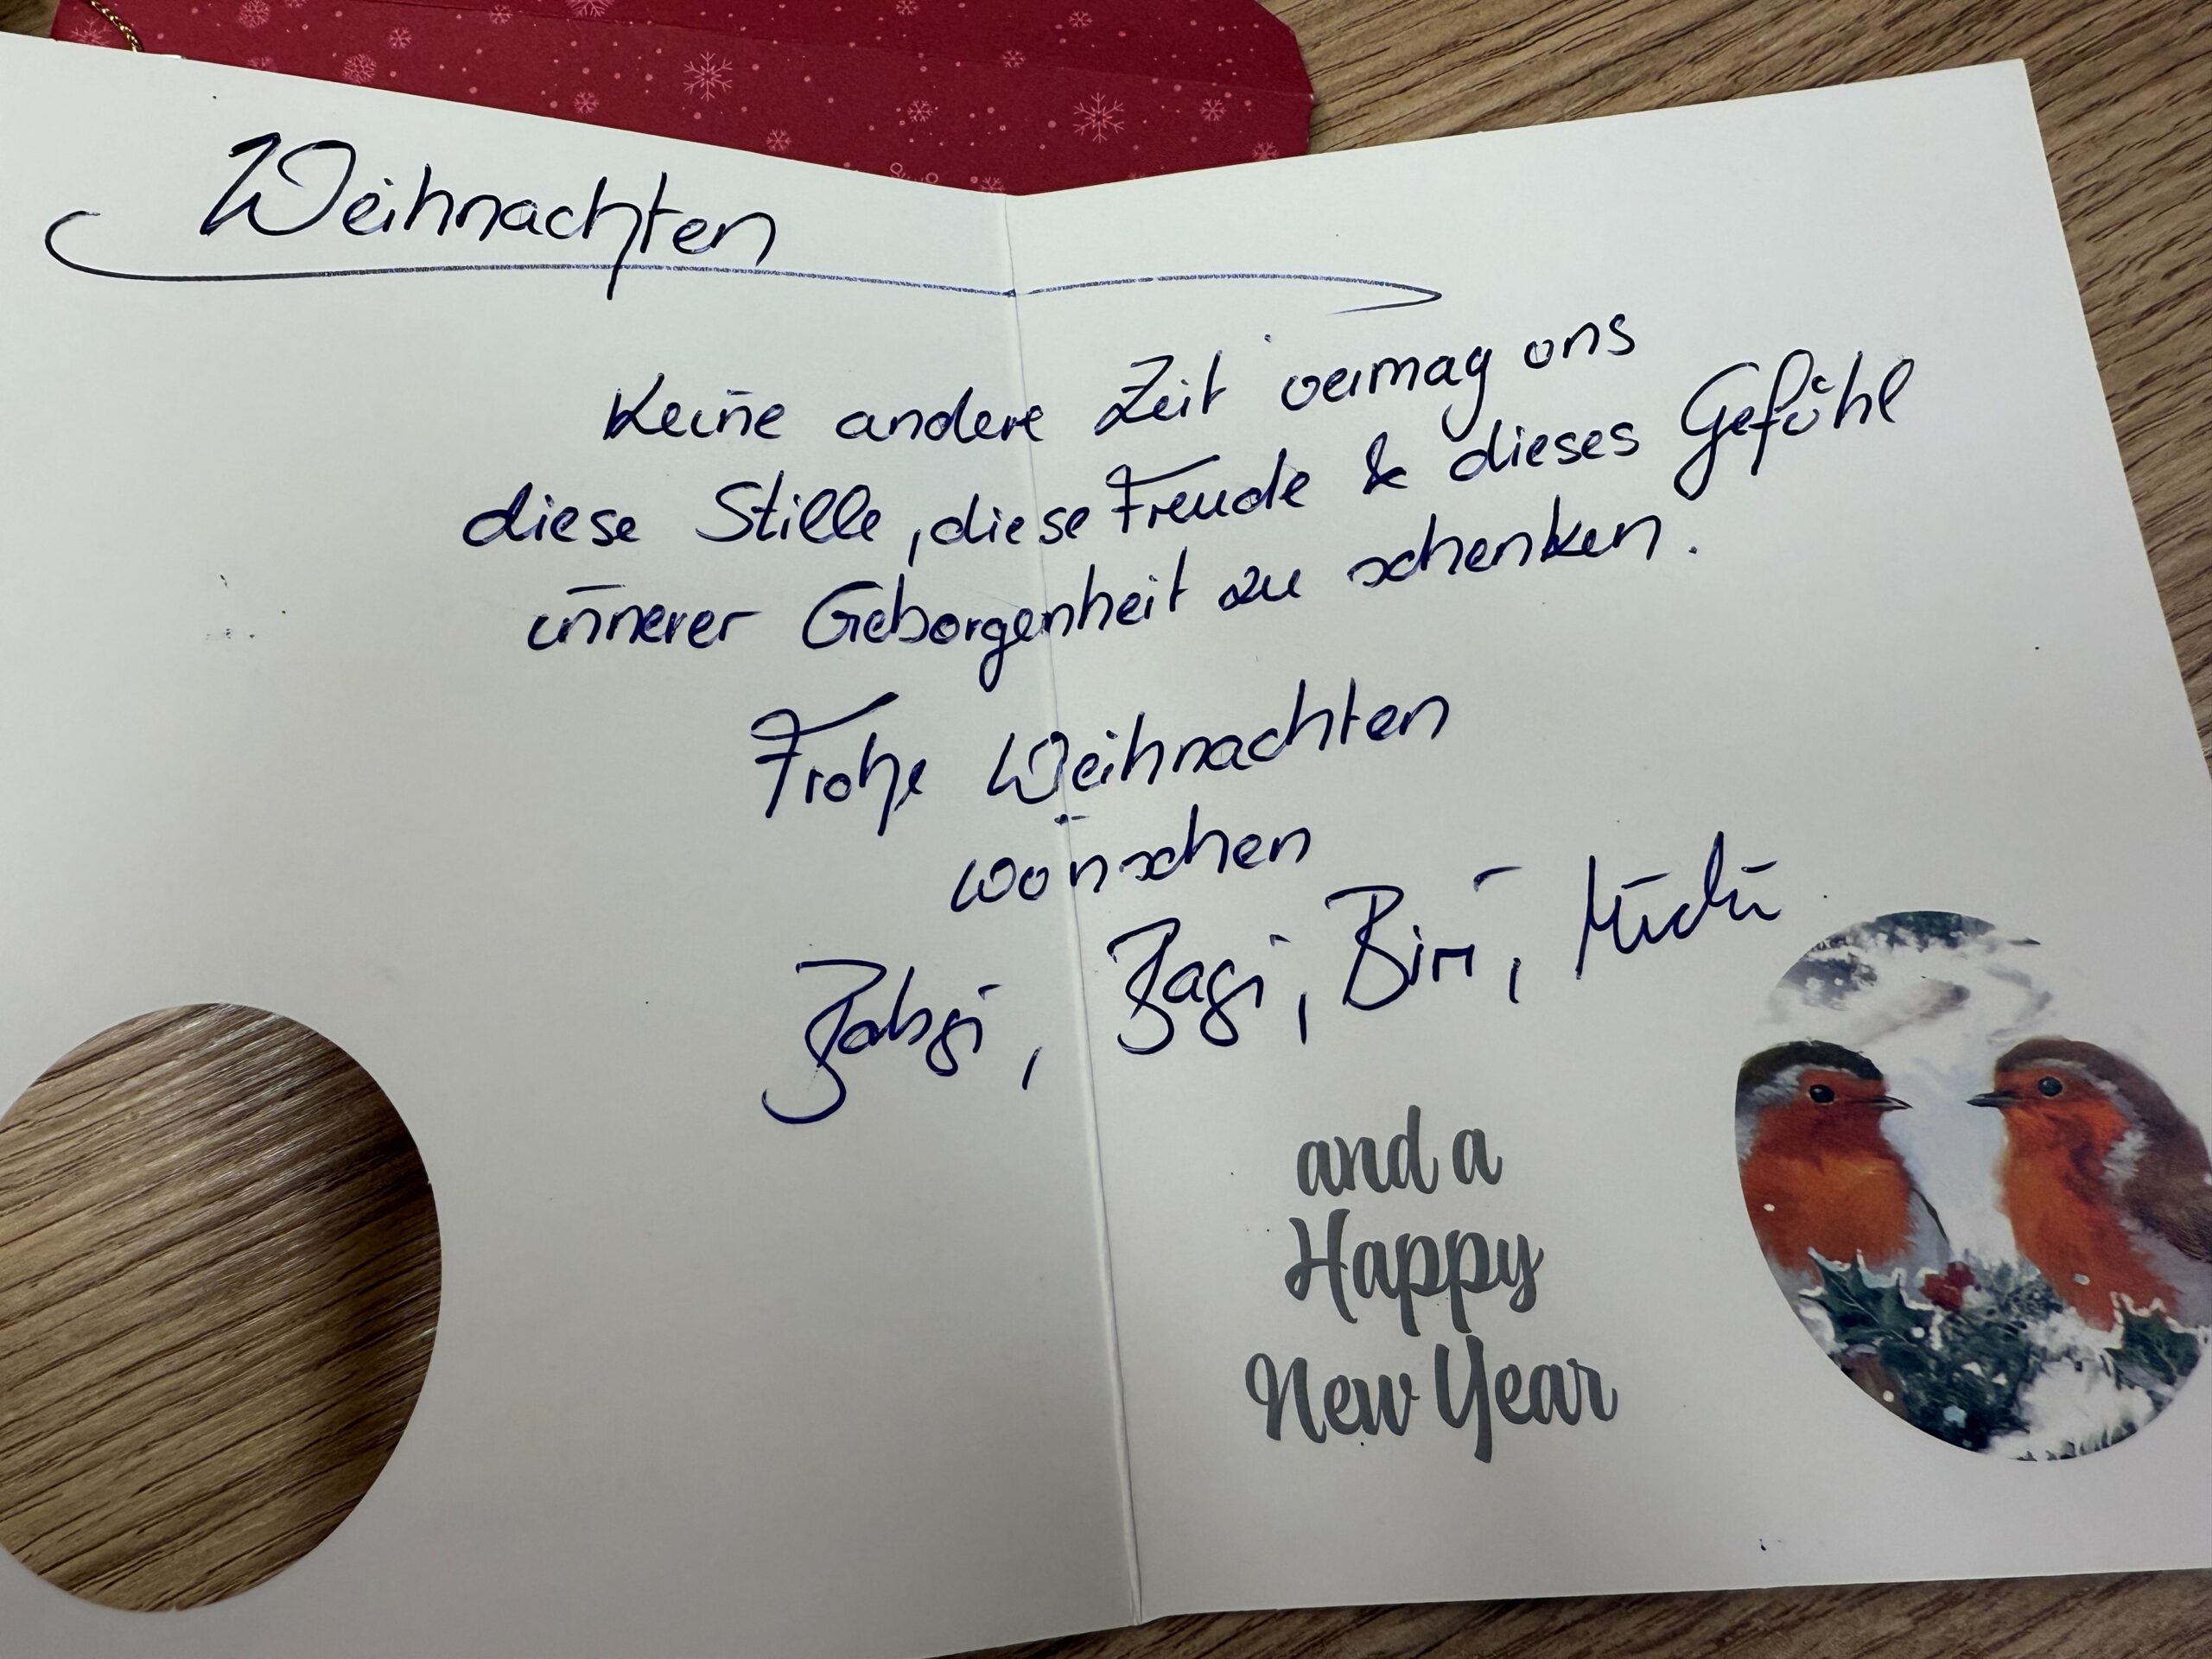 Weihnachten
Keine andere Zeit vermag uns
diese Stille, diese Freude & dieses Gefühl
innerer Geborgenheit zu schenken.
Frohe Weihnachten
wünschen
Biri, Michi
and a
Happy
New Year